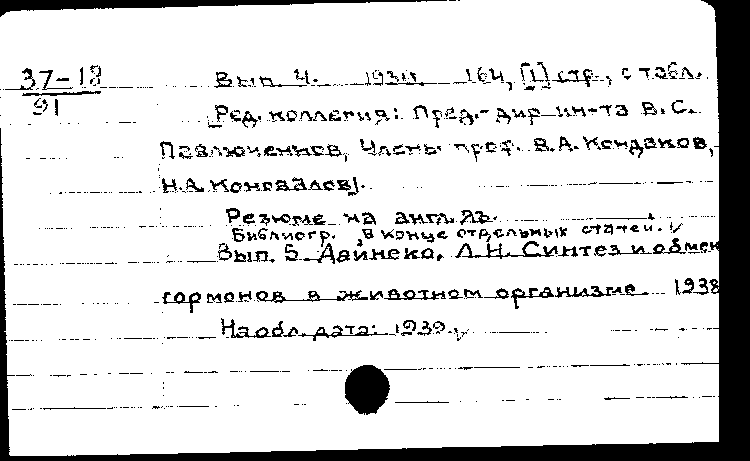 37-18
91
Вып. 4. 164, [1] стр., с табл.
[Ред. коллегия: Пред.-дир. ин-та В.С.
Павлюченков, Члены проф. В.А. Кондаков,
Н.А. Коновалов].
Резюме на англ. яз.
Библиогр. в конце отдельных статей.
Вып. 5. Дайнеко, Л.Н. Синтез и обмен
гормонов в животном организме. 1938
На обл. дата: 1939.